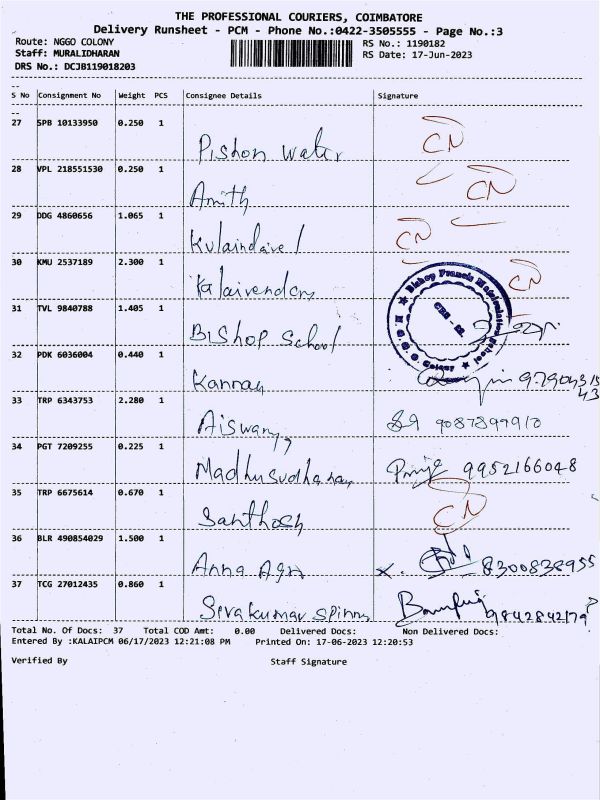 THE PROFESSIONAL COURIERS, COIMBATORE
Delivery Runsheet - PCM - Phone No.:0422-3505555 - Page No.:3
Route: NGGO COLONY
RS No.: 1190182
Staff: MURALIDHARAN
RS Date: 17-Jun-2023
DRS No.: DCJB119018203
S No Consignment No Weight PCS Consignee Details Signature
27 SPB 10133950 0.250 1
Pishon water CN
28 VPL 218551530 0.250 1
Amith CN
29 DDG 4860656 1.065 1
Kulaindaivel CN
30 KMU 2537189 2.300 1
Kalaivendan CN
31 TVL 9840788 1.405 1
Bishop School
32 PDK 6036004 0.440 1
Kannan
33 TRP 6343753 2.280 1
Aiswarya 9087899910
34 PGT 7209255 0.225 1
Madhusudhanan 9952166048
35 TRP 6675614 0.670 1
Santhosh CN
36 BLR 490854029 1.500 1
Anna Agri 8300838955
37 TCG 27012435 0.860 1
Sivakumar Spinn 9842842179
Total No. Of Docs: 37 Total COD Amt: 0.00 Delivered Docs: Non Delivered Docs:
Entered By :KALAIPCM 06/17/2023 12:21:08 PM Printed On: 17-06-2023 12:20:53
Verified By Staff Signature